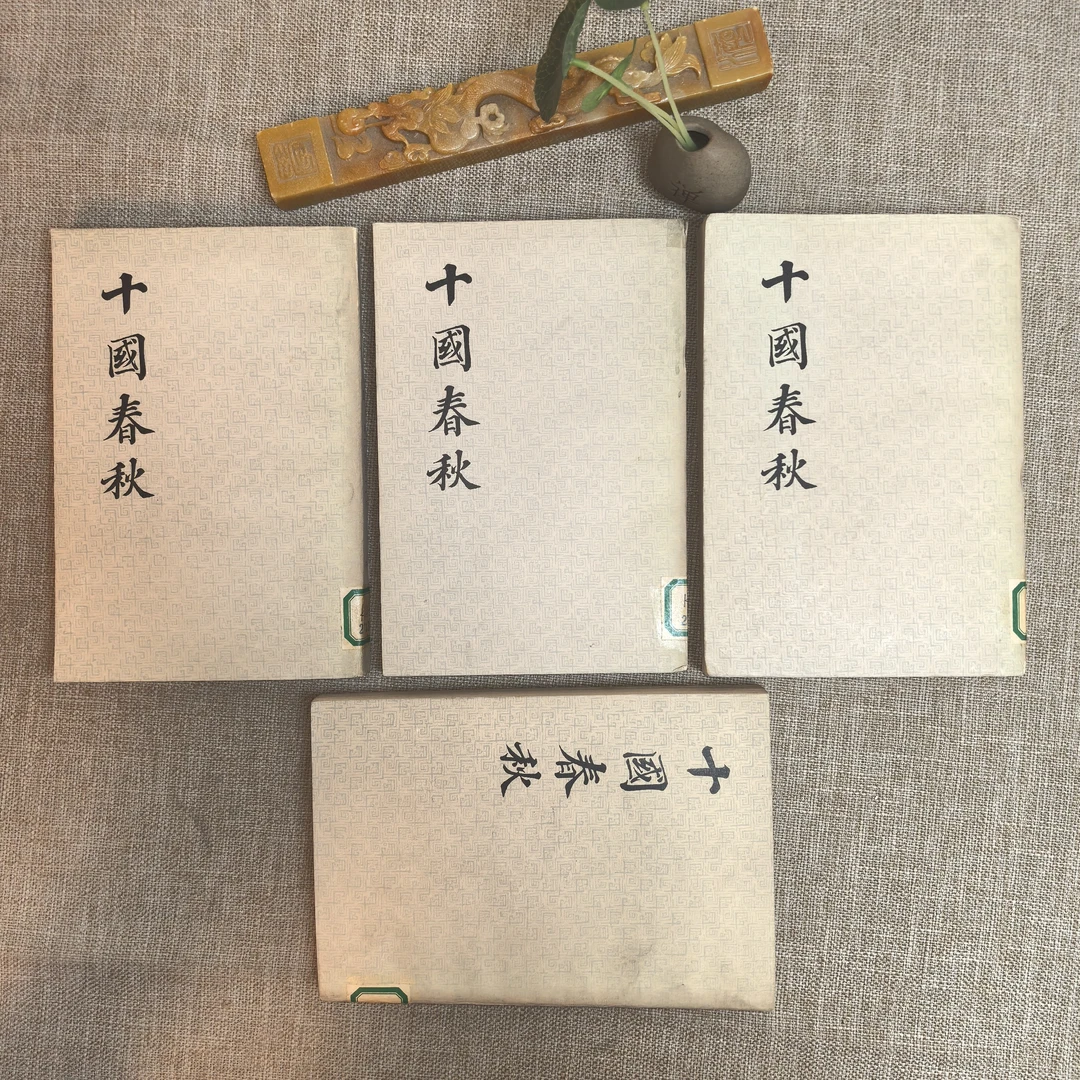 十國春秋
十國春秋
十國春秋
十國春秋